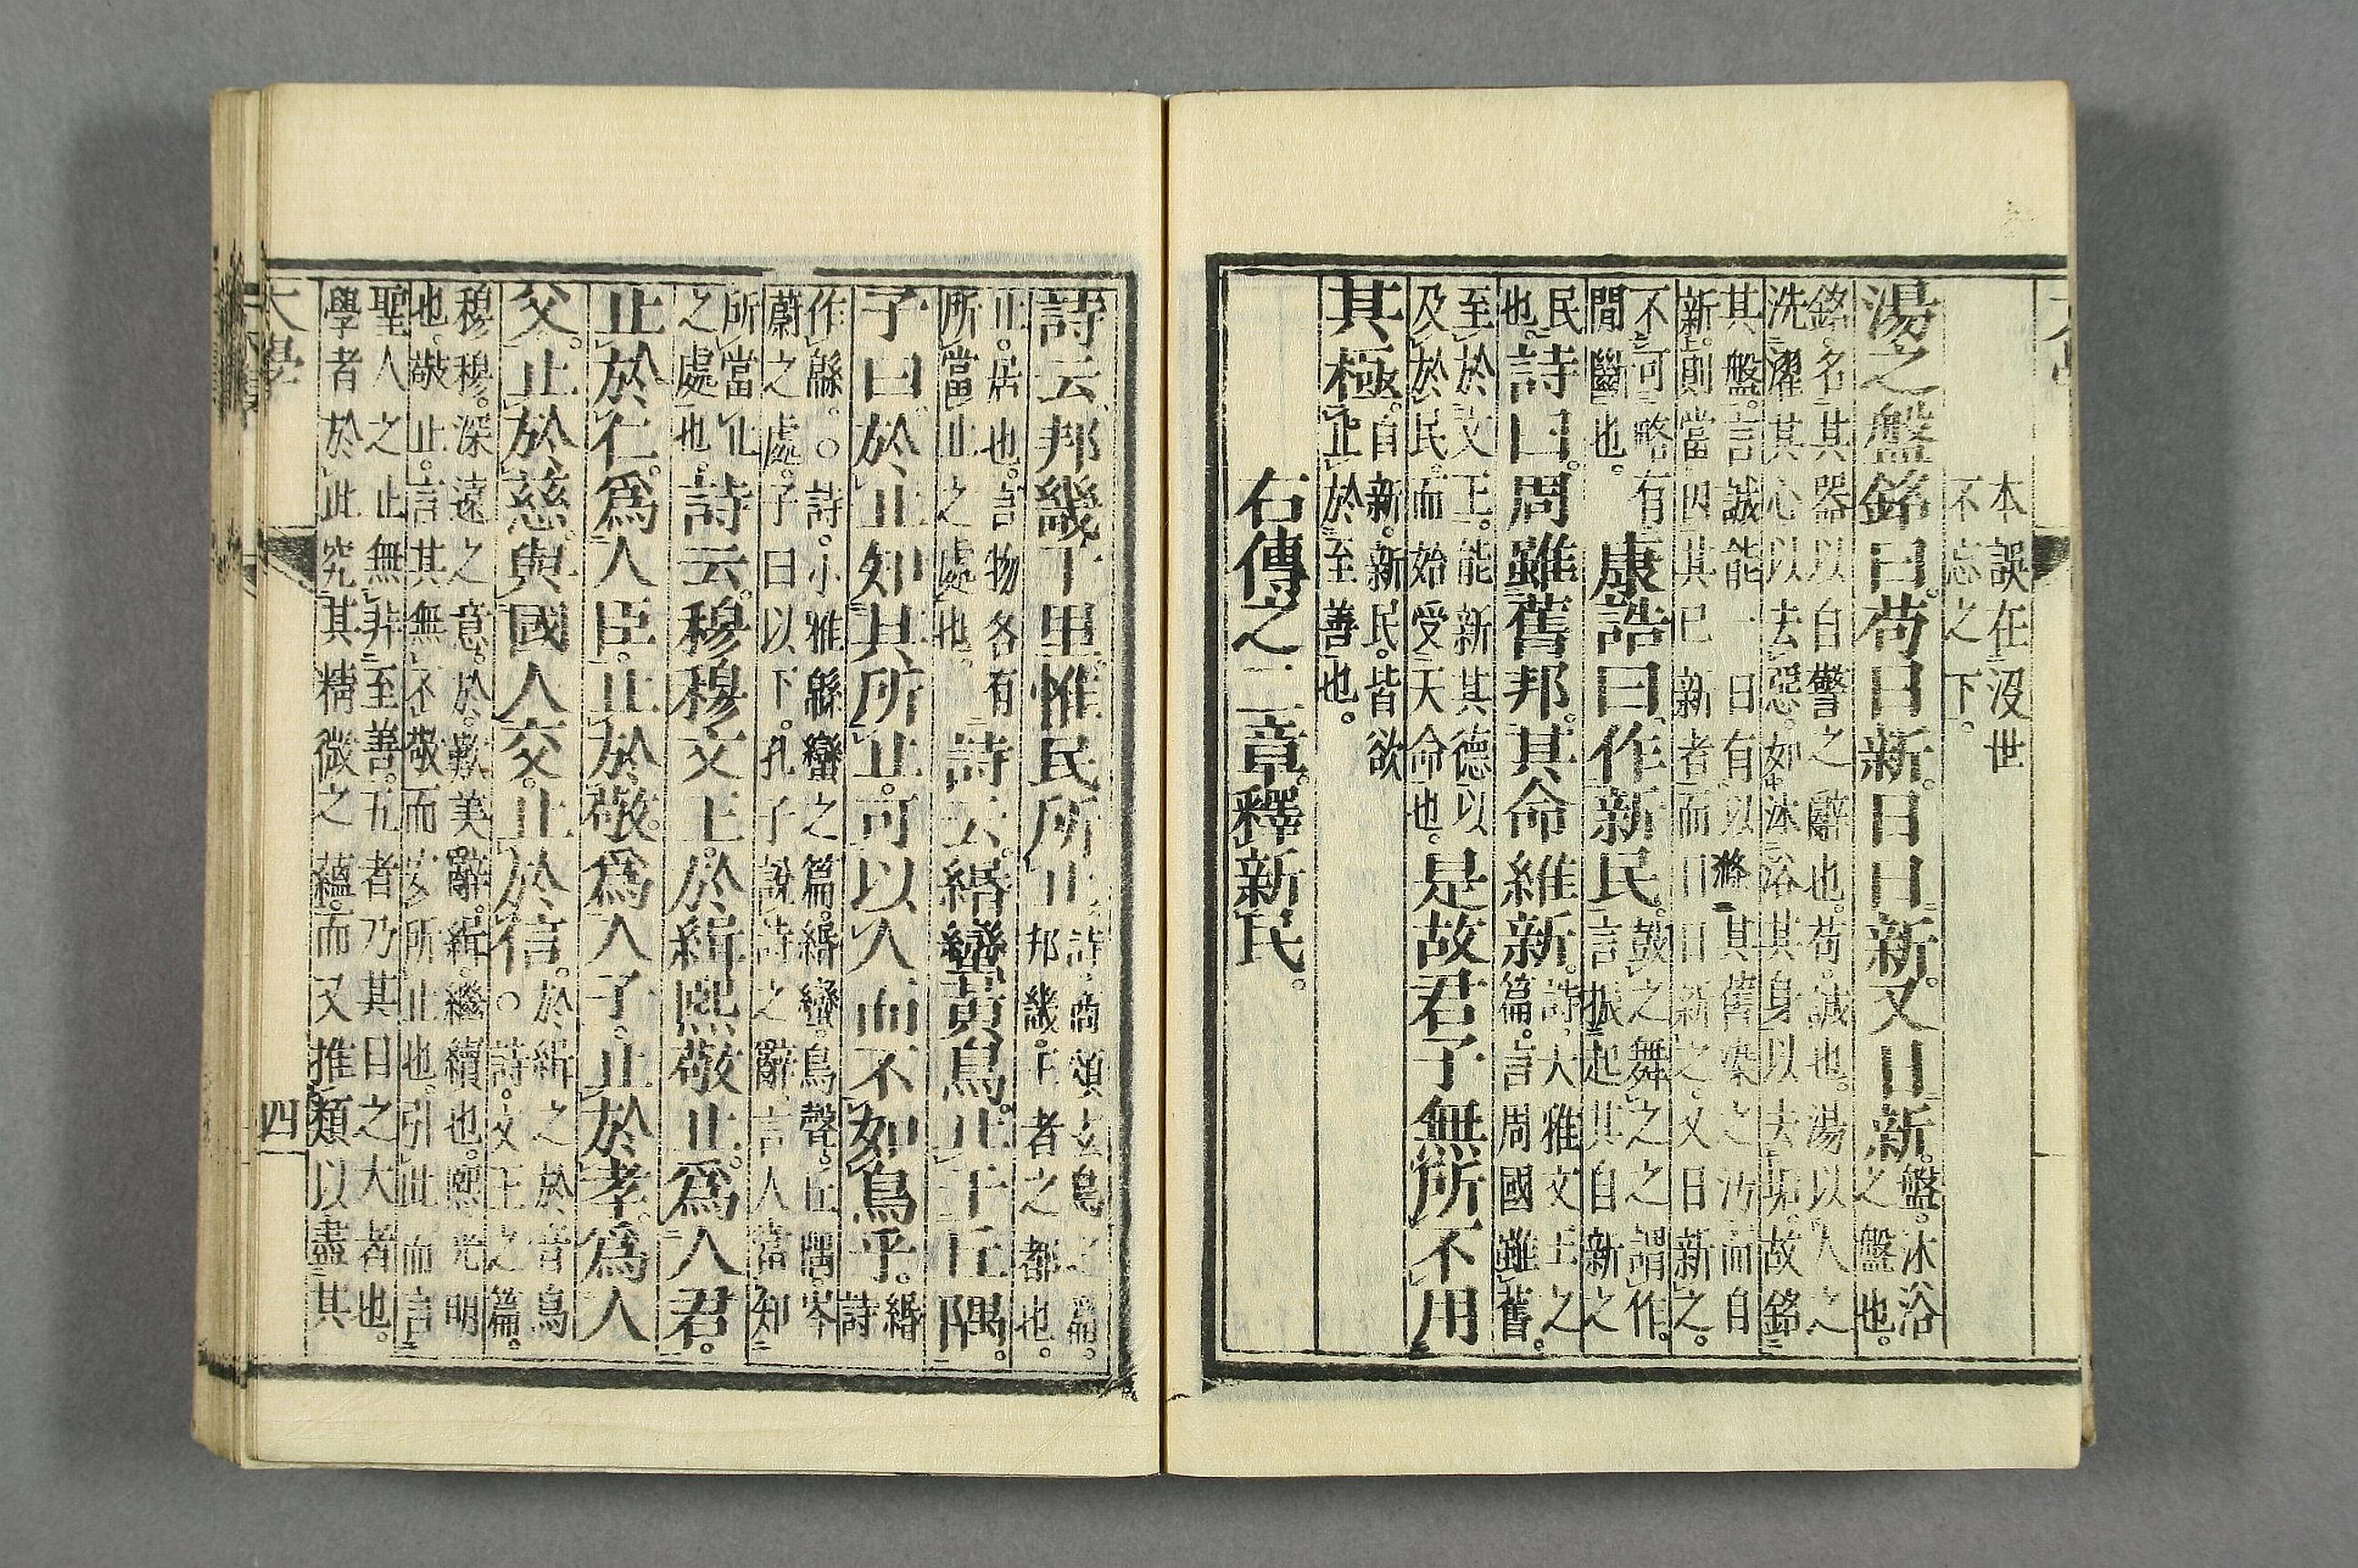 本誤在沒世
不忘之下。
湯之盤銘曰。苟日新。日日新。又日新。盤。沐浴
之盤也。
銘。名其器以自警之辭也。苟。誠也。湯以人之
洗濯其心以去惡。如沐浴其身以去垢。故銘
其盤。言誠能一日有以滌其舊染之汚而自
新。則當因其已新者而日日新之。又日新之。
不可略有
閒斷也。
康誥曰。作新民。鼓之舞之之謂作。
言振起其自新之
民
也。
詩曰。周雖舊邦。其命維新。詩。大雅文王之
篇。言周國雖舊。
至於文王。能新其德以
及於民。而始受天命也。
是故君子無所不用
其極。自新。新民。皆欲
止於至善也。
右傳之二章。釋新民。
詩云。邦畿千里。惟民所止。詩。商頌玄鳥之篇。
邦畿。王者之都也。
止。居也。言物各有
所當止之處也。
詩云。緡蠻黃鳥。止于丘隅。
子曰。於止知其所止。可以人而不如鳥乎。緡
詩
作緜。○詩。小雅緜蠻之篇。緡蠻。鳥聲。丘隅。岑
蔚之處。子曰以下。孔子說詩之辭。言人當知
所當止
之處也。
詩云。穆穆文王。於緝熙敬止。爲人君。
止於仁。爲人臣。止於敬。爲人子。止於孝。爲人
父。止於慈。與國人交。止於信。於緝之於音烏
○詩。文王之篇。
穆穆。深遠之意。於。歎美辭。緝。繼續也。熙。光明
也。敬止。言其無不敬而安所止也。引此而言
聖人之止無非至善。五者乃其目之大者也。
學者於此究其精微之蘊。而又推類以盡其
大學 四